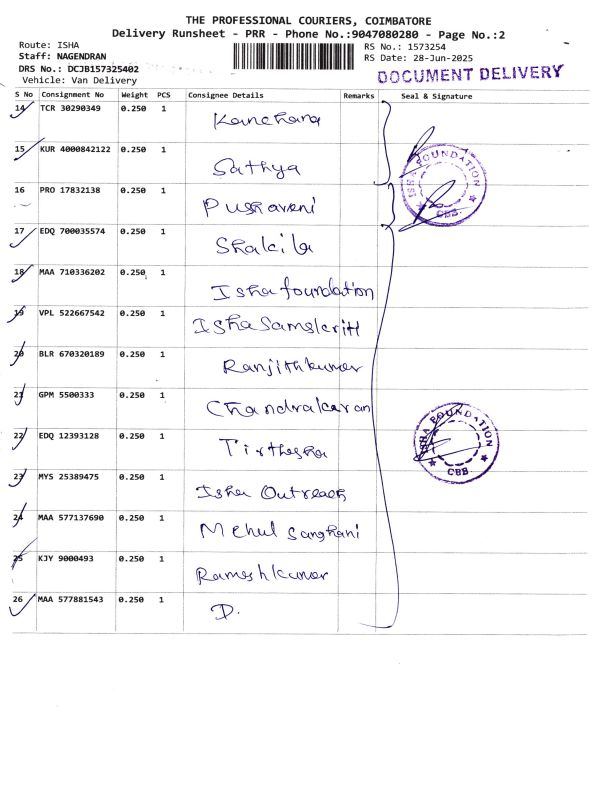 THE PROFESSIONAL COURIERS, COIMBATORE
Delivery Runsheet - PRR - Phone No.:9047080280 - Page No.:2
Route: ISHA
Staff: NAGENDRAN
DRS No.: DCJB157325402
Vehicle: Van Delivery
RS No.: 1573254
RS Date: 28-Jun-2025
DOCUMENT DELIVERY
S No Consignment No Weight PCS Consignee Details Remarks Seal & Signature
14 TCR 30290349 0.250 1 Kanchana
15 KUR 4000842122 0.250 1 Sathya
16 PRO 17832138 0.250 1
17 EDQ 700035574 0.250 1 Shakila
18 MAA 710336202 0.250 1 Isha foundation
19 VPL 522667542 0.250 1 Isha Samskriti
20 BLR 670320189 0.250 1 Ranjithkumar
21 GPM 5500333 0.250 1 Chandrakaran
22 EDQ 12393128 0.250 1 Tirthesha
23 MYS 25389475 0.250 1 Isha Outreach
24 MAA 577137690 0.250 1 Mehul Sanghani
25 KJY 9000493 0.250 1 Rameshkumar
26 MAA 577881543 0.250 1 D.
ISHA FOUNDATION
CBB
ISHA FOUNDATION
CBB